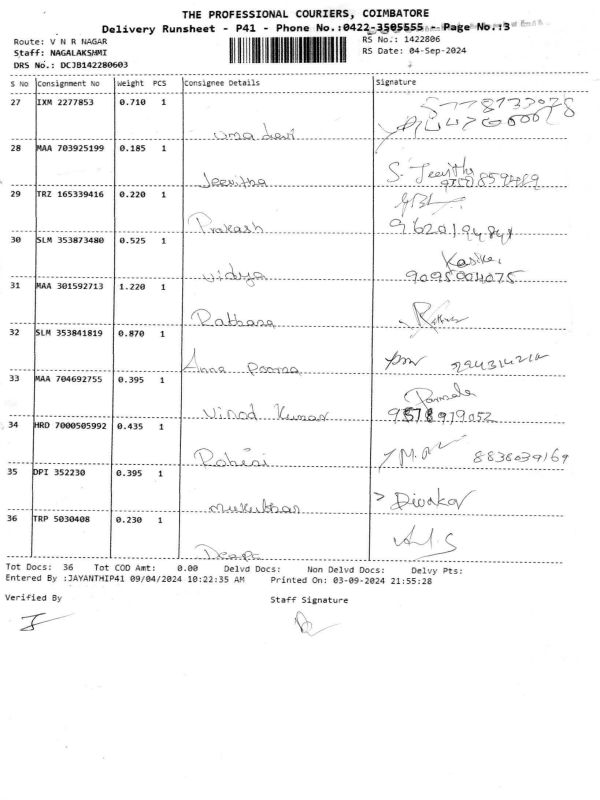 THE PROFESSIONAL COURIERS, COIMBATORE
Delivery Runsheet - P41 - Phone No.:0422-3505555 - Page No.:3
Route: V N R NAGAR
RS No.: 1422806
Staff: NAGALAKSHMI
RS Date: 04-Sep-2024
DRS No.: DCJB142280603
S No Consignment No Weight PCS Consignee Details Signature
27 IXM 2277853 0.710 1
uma devi
28 MAA 703925199 0.185 1 S. Jeevitha
Jeevitha
29 TRZ 165339416 0.220 1
Prakash
30 SLM 353873480 0.525 1
vidya 9095004075
31 MAA 301592713 1.220 1
Rathana
32 SLM 353841819 0.870 1
Anna poorna
33 MAA 704692755 0.395 1 Pamela
Vinod Kumar 9578919052
34 HRD 7000505992 0.435 1
Rohini 8838039169
35 DPI 352230 0.395 1 Divakar
36 TRP 5030408 0.230 1
Tot Docs: 36 Tot COD Amt: 0.00 Delvd Docs: Non Delvd Docs: Delvy Pts:
Entered By :JAYANTHIP41 09/04/2024 10:22:35 AM Printed On: 03-09-2024 21:55:28
Verified By Staff Signature